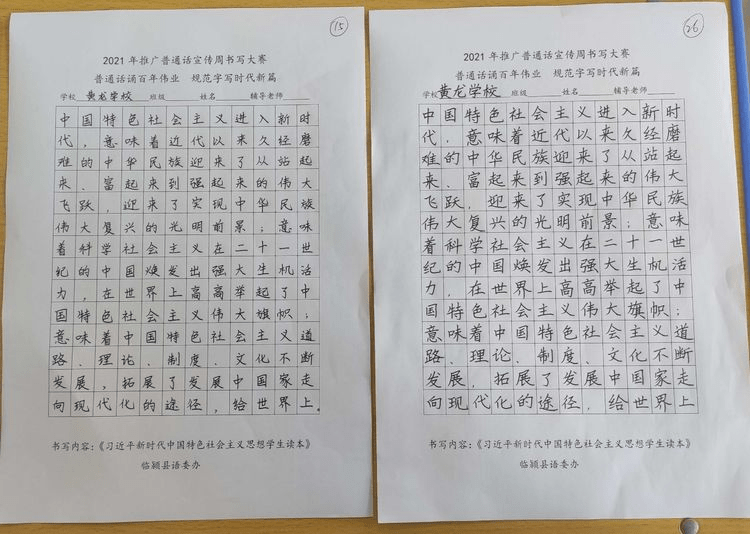 15
2021年推广普通话宣传周书写大赛
普通话诵百年伟业 规范字写时代新篇
学校 黄龙学校 班级 姓名 辅导老师
中国特色社会主义进入新时
代，意味着近代以来久经磨
难的中华民族迎来了从站起
来、富起来到强起来的伟大
飞跃，迎来了实现中华民族
伟大复兴的光明前景；意味
着科学社会主义在二十一世
纪的中国焕发出强大生机活
力，在世界上高高举起了中
国特色社会主义伟大旗帜；
意味着中国特色社会主义道
路、理论、制度、文化不断
发展，拓展了发展中国家走
向现代化的途径，给世界上。
书写内容：《习近平新时代中国特色社会主义思想学生读本》
临颍县语委办
26
2021年推广普通话宣传周书写大赛
普通话诵百年伟业 规范字写时代新篇
学校 黄龙学校 班级 姓名 辅导老师
中国特色社会主义进入新时
代，意味着近代以来久经磨
难的中华民族迎来了从站起
来、富起来到强起来的伟大
飞跃，迎来了实现中华民族
伟大复兴的光明前景；意味
着科学社会主义在二十一世
纪的中国焕发出强大生机活
力，在世界上高高举起了中
国特色社会主义伟大旗帜；
意味着中国特色社会主义道
路、理论、制度、文化不断
发展，拓展了发展中国家走
向现代化的途径，给世界上
书写内容：《习近平新时代中国特色社会主义思想学生读本》
临颍县语委办